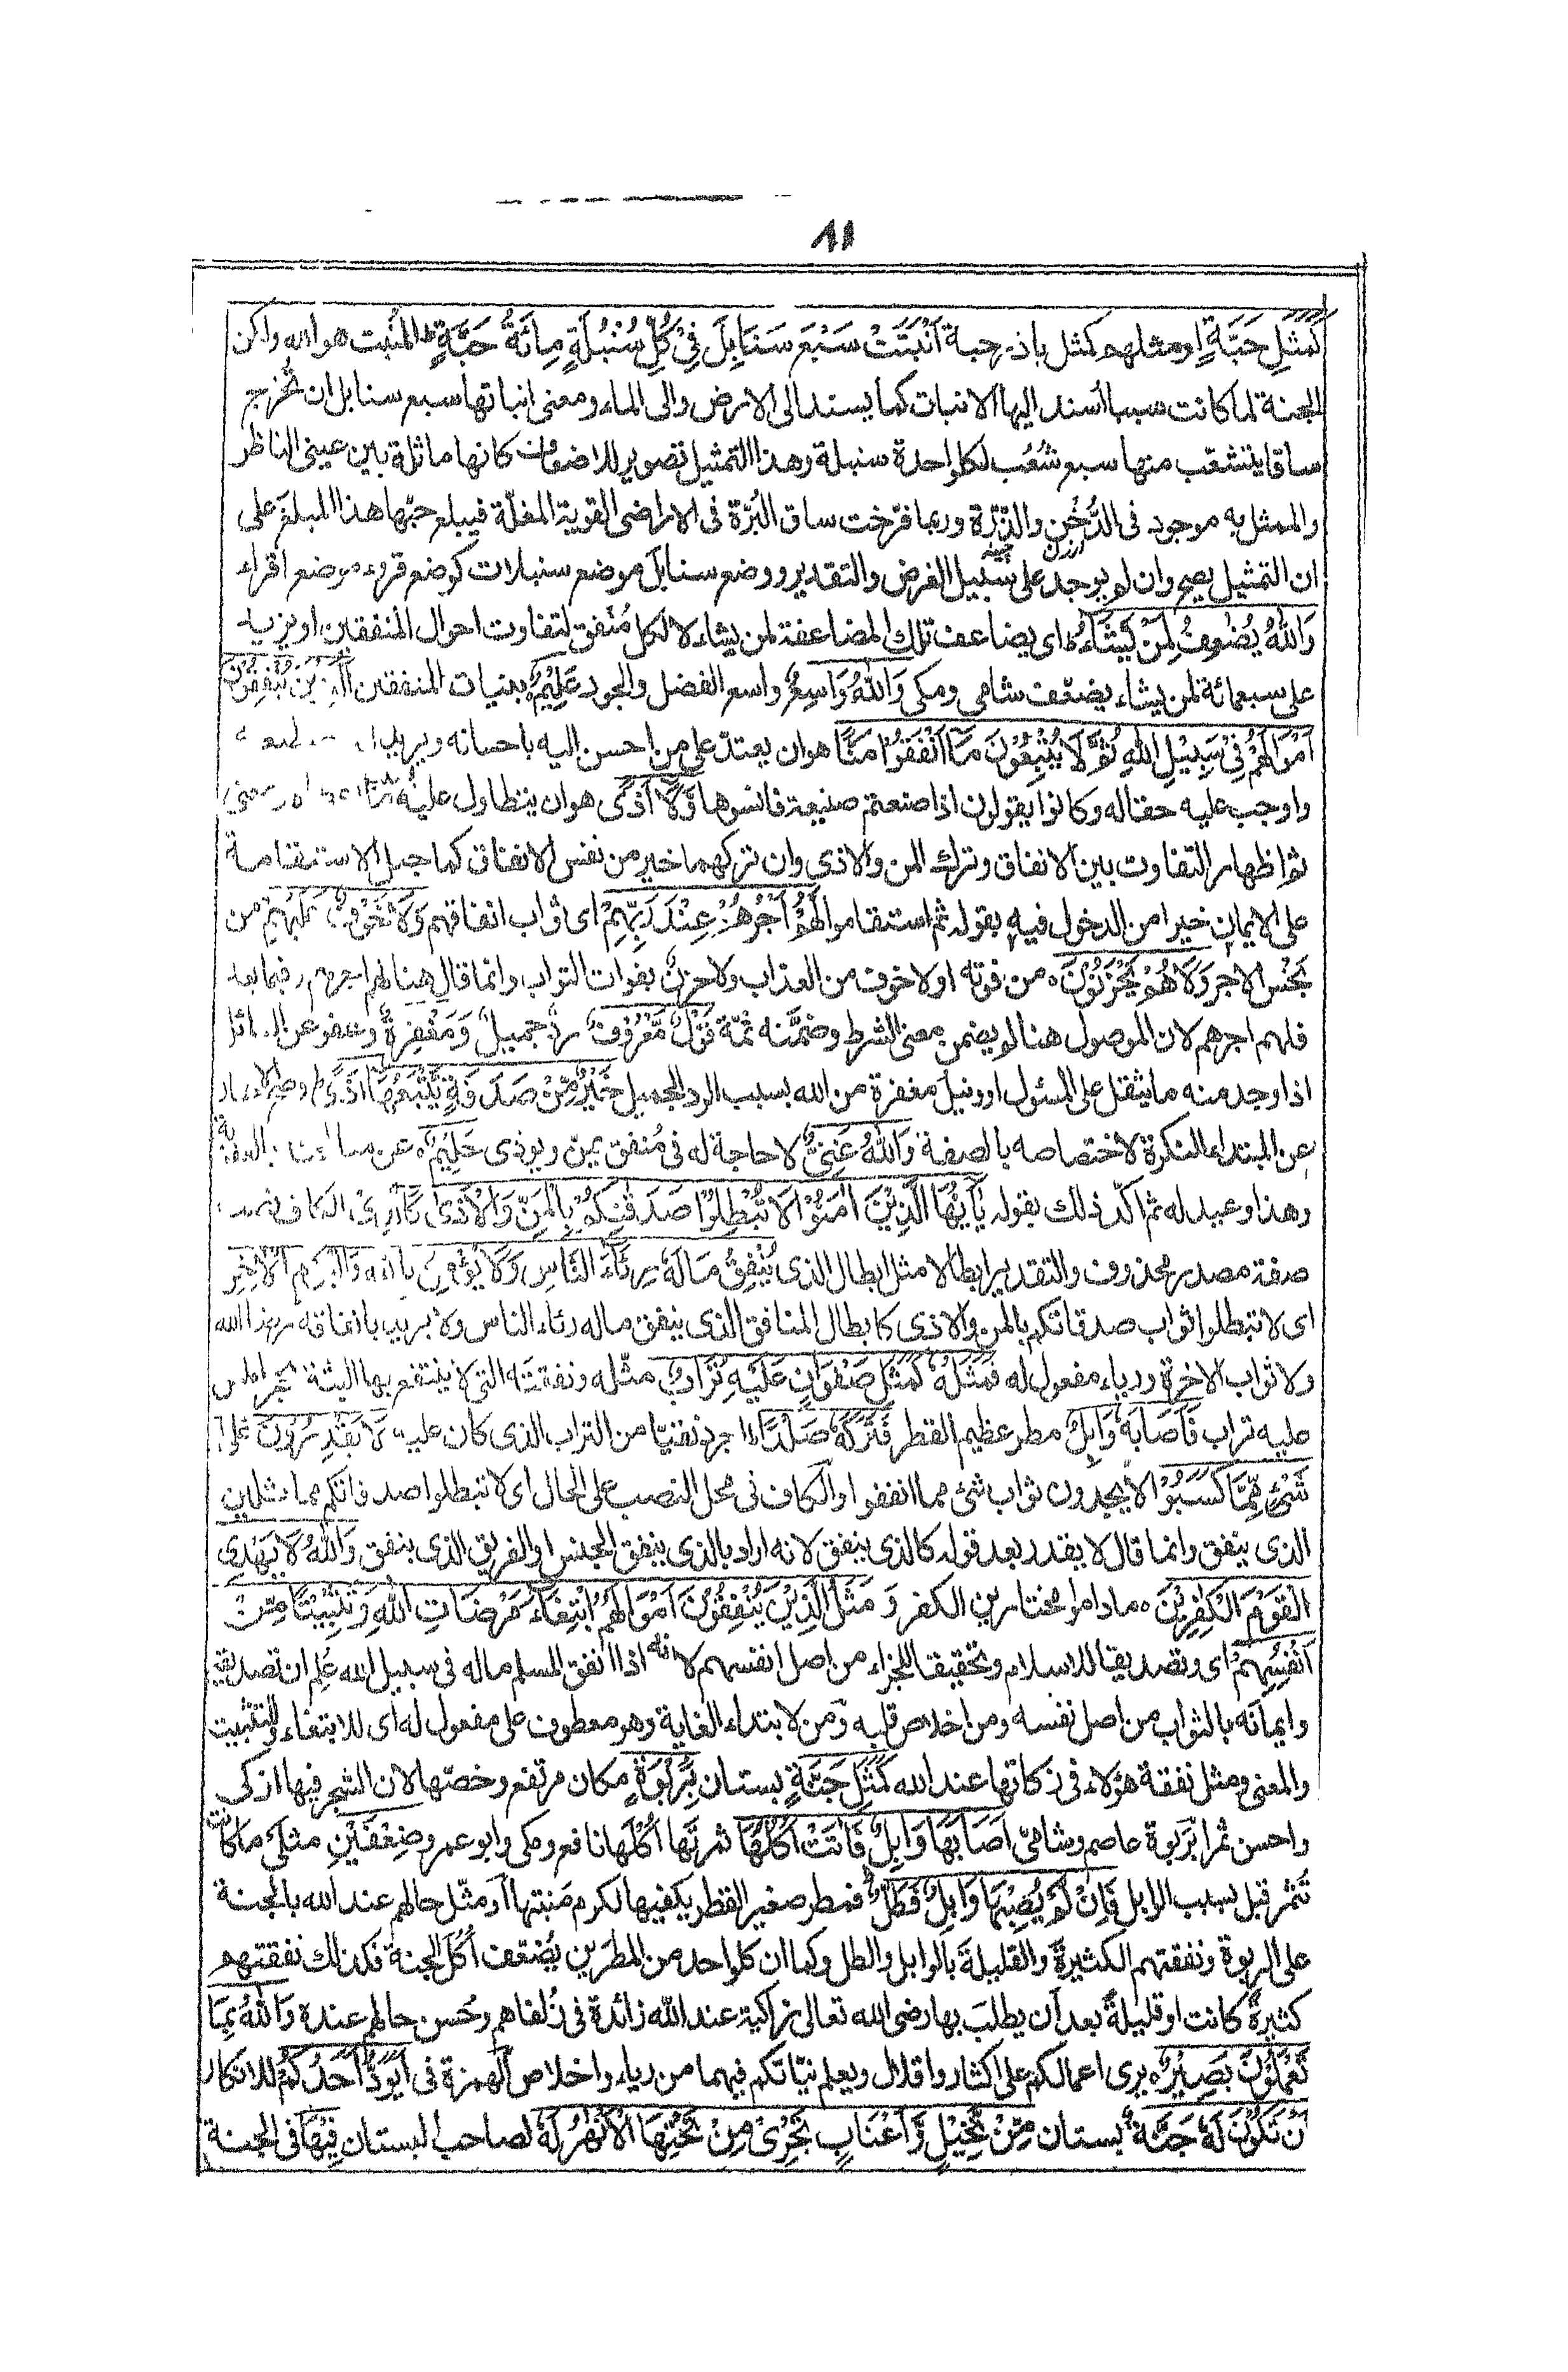 ٨١
كَمَثَلِ حَبَّةٍ او مثلهم كمثل باذر حبة اَنْبَتَتْ سَبْعَ سَنَابِلَ فِيْ كُلِّ سُنْبُلَةٍ مِائَةُ حَبَّةٍ ط المنبت هو الله ولكن
الحبة لما كانت سببا اُسند اليها الانبات كما يسند الى الارض والى الماء ومعنى انباتها سبع سنابل ان تُخرج
ساقا يتشعّب منها سبع شُعَب لكل واحدة سنبلة وهذا التمثيل تصوير للاضعاف كانها ماثلة بين عينى الناظر
والممثل به موجود فى الدُّخْن والذُّرَة وربما فرّخت ساق البُرّة فى الاراضى القوية المغلّة فيبلغ حبّها هذا المبلغ على
ان التمثيل يصح وان لم يوجد على سبيل الفرض والتقدير ووضع سنابل موضع سنبلات كوضع قروء موضع اقراء
وَاللهُ يُضٰعِفُ لِمَنْ يَّشَآءُ ط اى يضاعف تلك المضاعفة لمن يشاء لا لكل مُنْفق لتفاوت احوال المنفقين او يزيد
على سبعمائة لمن يشاء يضعّف شامى ومكى وَاللهُ وَاسِعٌ واسع الفضل والجود عَلِيْمٌ بنيات المنفقين اَلَّذِيْنَ يُنْفِقُوْنَ
اَمْوَالَهُمْ فِيْ سَبِيْلِ اللهِ ثُمَّ لَا يُتْبِعُوْنَ مَآ اَنْفَقُوْا مَنًّا هو ان يعتدّ على من احسن اليه باحسانه ويريد
واوجب عليه حقا له وكانوا يقولون اذا صنعتم صنيعة فانسوها وَّلَآ اَذًى هو ان يتطاول عليه
ثم اظهار التفاوت بين الانفاق وترك المن والاذى وان تركهما خير من نفس الانفاق كما جعل الاستقامة
على الايمان خيرا من الدخول فيه بقوله ثم استقاموا لَهُمْ اَجْرُهُمْ عِنْدَ رَبِّهِمْ اى ثواب انفاقهم وَلَا خَوْفٌ عَلَيْهِمْ من
بَخْس الاجر وَلَا هُمْ يَحْزَنُوْنَ ه من فوته او لا خوف من العذاب ولا حزن بفوات الثواب وانما قال هنا لهم اجرهم وفيما بعد
فلهم اجرهم لان الموصول هنا لم يضمن معنى الشرط وضمّنه ثمّة قَوْلٌ مَّعْرُوْفٌ ردّ جميل وَمَغْفِرَةٌ وعفو عن السائل
اذا وجد منه ما يثقل على المسئول او ونيل مغفرة من الله بسبب الرد الجميل خَيْرٌ مِّنْ صَدَقَةٍ يَّتْبَعُهَآ اَذًى ط وصح الاخبار
عن المبتداء النكرة لاختصاصه بالصفة وَاللهُ غَنِيٌّ لا حاجة له فى مُنفق يمنّ ويوذى حَلِيْمٌ ه عن
وهذا وعيد له ثم اكّد ذلك بقوله يٰٓاَيُّهَا الَّذِيْنَ اٰمَنُوْا لَا تُبْطِلُوْا صَدَقٰتِكُمْ بِالْمَنِّ وَالْاَذٰى كَالَّذِيْ الكاف نصب
صفة مصدر محذوف والتقدير ابطالا مثل ابطال الذى يُنْفِقُ مَالَهٗ رِئَآءَ النَّاسِ وَلَا يُؤْمِنُ بِاللهِ وَالْيَوْمِ الْاٰخِرِ
اى لا تبطلوا ثواب صدقاتكم بالمن والاذى كابطال المنافق الذى ينفق ماله رئاء الناس ولا يريد بانفاقه رضا الله
ولا ثواب الاخرة ورياء مفعول له فَمَثَلُهٗ كَمَثَلِ صَفْوَانٍ عَلَيْهِ تُرَابٌ مثّله ونفقته التى لا ينتفع بها البتة بحجر املس
عليه تراب فَاَصَابَهٗ وَابِلٌ مطر عظيم القطر فَتَرَكَهٗ صَلْدًا ط اجرد نقيّا من التراب الذى كان عليه لَا يَقْدِرُوْنَ عَلٰى
شَيْءٍ مِّمَّا كَسَبُوْا لا يجدون ثواب شئ مما انفقوا والكاف فى محل النصب على الحال اى لا تبطلوا صدقاتكم مماثلين
الذى ينفق وانما قال لا يقدر بعد قوله كالذى ينفق لانه اراد بالذى ينفق الجنس او الفريق الذى ينفق وَاللهُ لَا يَهْدِي
الْقَوْمَ الْكٰفِرِيْنَ ه ماداموا مختارين الكفر وَ مَثَلُ الَّذِيْنَ يُنْفِقُوْنَ اَمْوَالَهُمُ ابْتِغَآءَ مَرْضَاتِ اللهِ وَتَثْبِيْتًا مِّنْ
اَنْفُسِهِمْ اى وتصديقا للاسلام وتحقيقا للجزاء من اصل انفسهم لانه اذا انفق المسلم ماله فى سبيل الله عُلِم ان تصديقه
وايمانه بالثواب من اصل نفسه ومن اخلاص قلبه ومن لابتداء الغاية وهو معطوف على مفعول له اى للابتغاء وللتثبيت
والمعنى ومثل نفقة هؤلاء فى زكاتها عند الله كَمَثَلِ جَنَّةٍ بستان بِرَبْوَةٍ مكان مرتفع وخصّها لان الشجر فيها ازكى
واحسن ثمرا بَرَبوة عاصم وشامىّ اَصَابَهَا وَابِلٌ فَاٰتَتْ اُكُلَهَا ثمرتها اُكْلَها نافع ومكى وابو عمرو ضِعْفَيْنِ مثلَىْ ما كانت
تثمر قبل بسبب الوابل فَاِنْ لَّمْ يُصِبْهَا وَابِلٌ فَطَلٌّ ط فمطر صغير القطر يكفيها لكرم مَنبتها او مثّل حالهم عند الله بالجنة
على الربوة ونفقتهم الكثيرة والقليلة بالوابل والطل وكما ان كل واحد من المطرين يُضعّف اُكُل الجنة فكذلك نفقتهم
كثيرةً كانت او قليلةً بعد ان يطلب بها رضى الله تعالى زاكية عند الله زائدة فى زُلفاهم وحُسن حالهم عنده وَاللهُ بِمَا
تَعْمَلُوْنَ بَصِيْرٌ ه يرى اعمالكم على اكثار واقلال ويعلم نيّاتكم فيهما من رياء واخلاص الهمزة فى اَيَوَدُّ اَحَدُكُمْ للانكار
اَنْ تَكُوْنَ لَهٗ جَنَّةٌ بستان مِّنْ نَّخِيْلٍ وَّاَعْنَابٍ تَجْرِيْ مِنْ تَحْتِهَا الْاَنْهٰرُ لَهٗ لصاحب البستان فِيْهَا فى الجنة